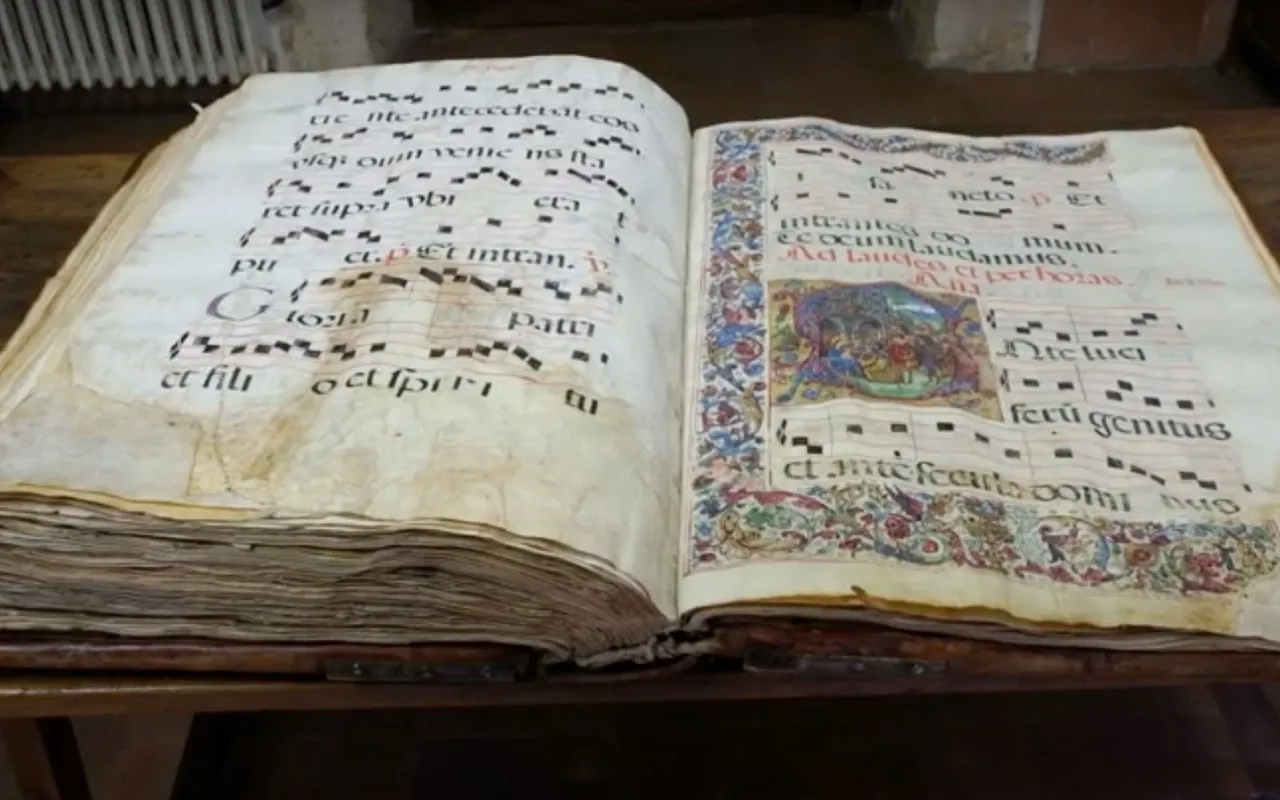 te ante antecedebat eos
usq; dum venie ns sta
ret supra vbi era t
pu er. p. Et intran. v.
Gloria patri
et fili o et spiri tui
sa ncto. p. Et
intrantes do mum.
Te deum laudamus.
Ad laudes et per horas.
Ana
Ante luci
ferū genitus
et ante secula domi nus